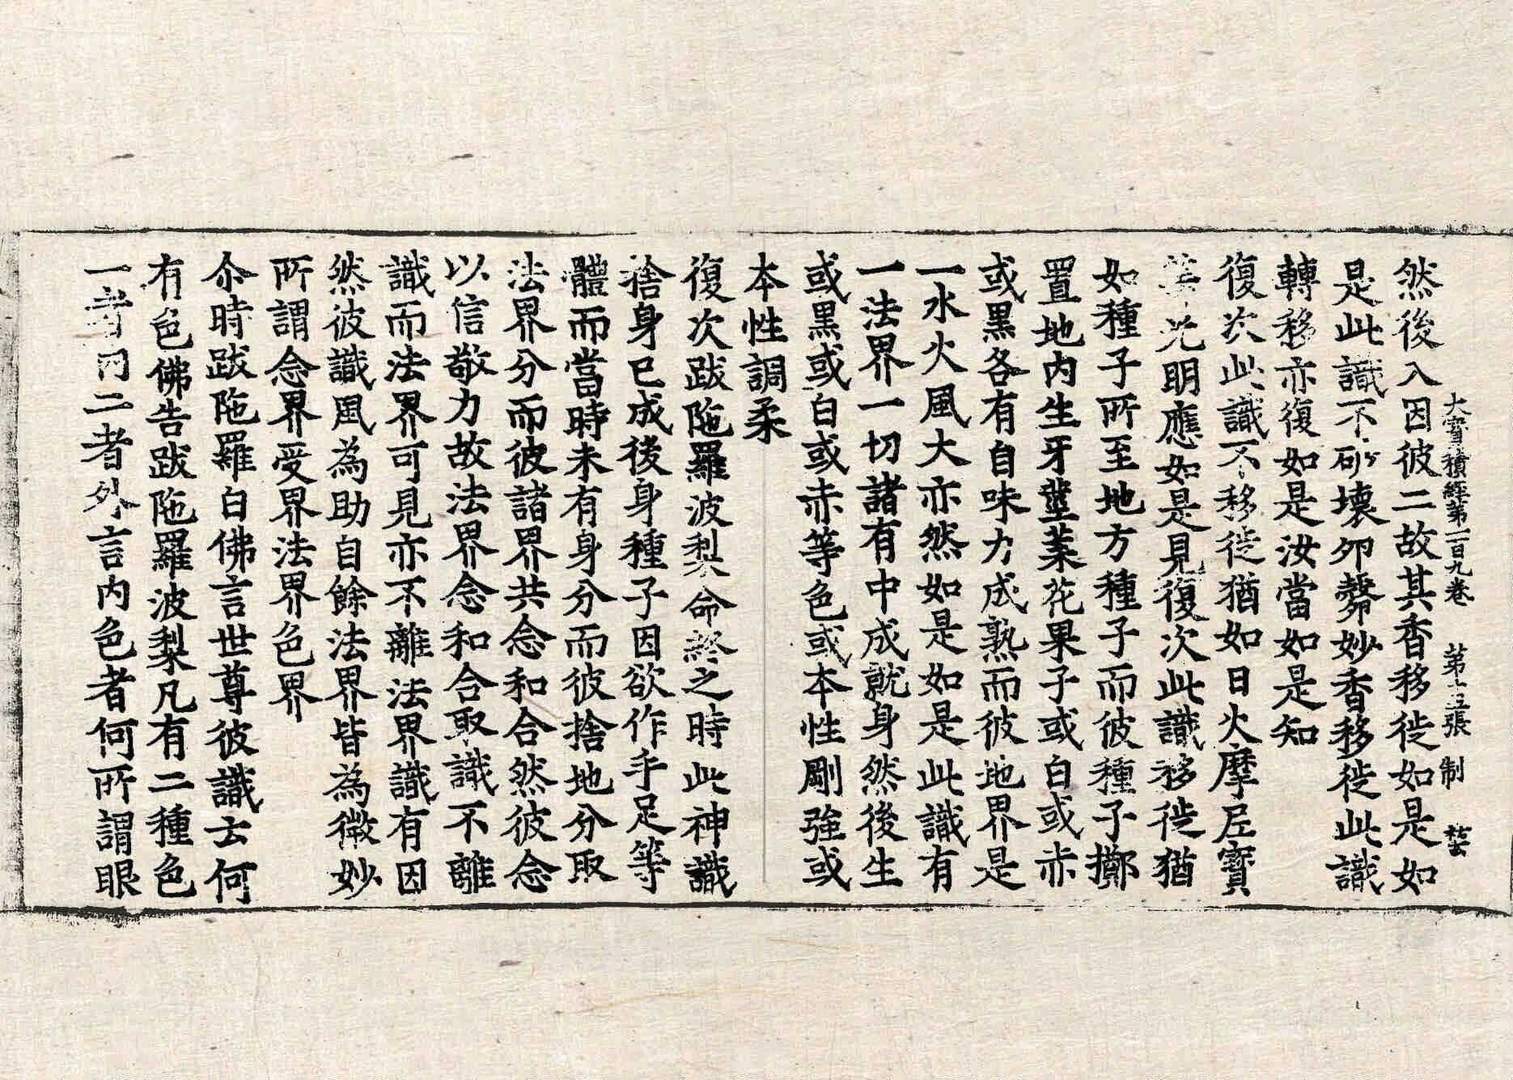 大寶積經第一百九卷 第十五張 制
然後入因彼二故其香移徙如是如
是此識不破壞卵麝妙香移徙此識
轉移亦復如是汝當如是知
復次此識不移徙猶如日火摩尼寶
等光明應如是見復次此識移徙猶
如種子所至地方種子而彼種子擲
置地內生牙莖葉花果子或白或赤
或黑各有自味力成熟而彼地界是
一水火風大亦然如是如是此識有
一法界一切諸有中成就身然後生
或黑或白或赤等色或本性剛強或
本性調柔
復次跋陁羅波梨命終之時此神識
捨身已成後身種子因欲作手足等
體而當時未有身分而彼捨地分取
法界分而彼諸界共念和合然彼念
以信敬力故法界念和合取識不離
識而法界可見亦不離法界識有因
然彼識風為助自餘法界皆為微妙
所謂念界受界法界色界
尒時跋陁羅白佛言世尊彼識士何
有色佛告跋陁羅波梨凡有二種色
一者內二者外言內色者何所謂眼